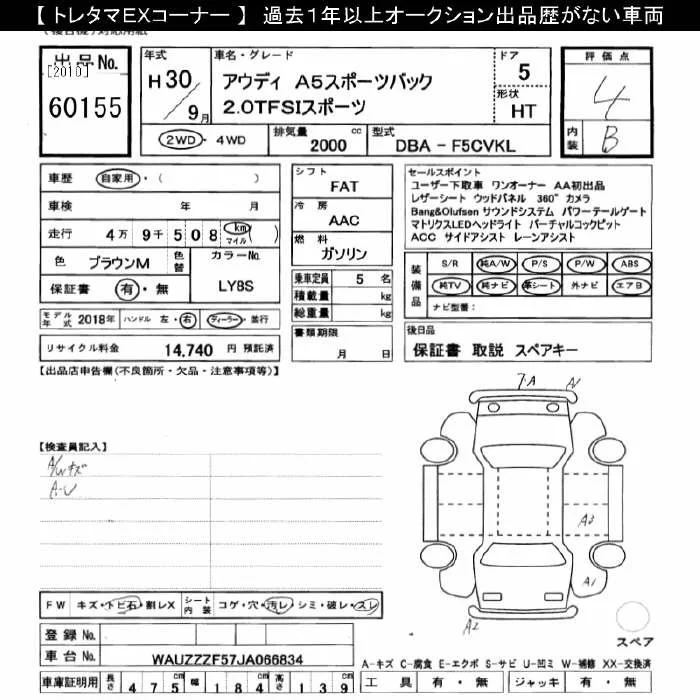 【 トレタマEXコーナー 】 過去1年以上オークション出品歴がない車両
出品No.
[2010]
60155
年式
H30/9月
車名・グレード
アウディ A5スポーツバック
2.0TFSIスポーツ
ドア
5
形状
HT
評価点
4
内装
B
2WD・4WD
排気量 2000 cc
型式 DBA - F5CVKL
車歴 自家用・( )
車検 年 月
走行 4万9千508 km マイル ( )
色 ブラウンM 色替
カラーNo.
LY8S
保証書 有・無
シフト
FAT
冷房
AAC
燃料
ガソリン
乗車定員 5 名
積載量 kg
総重量 kg
書類期限
月 日
セールスポイント
ユーザー下取車 ワンオーナー AA初出品
レザーシート ウッドパネル 360°カメラ
Bang&Olufsen サウンドシステム パワーテールゲート
マトリクスLEDヘッドライト バーチャルコックピット
ACC サイドアシスト レーンアシスト
装備品
S/R 純A/W P/S P/W ABS
純TV 純ナビ 革シート 外ナビ エアB
ナビ型番:
モデル年式 2018年 ハンドル 左・右 ディーラー・並行
リサイクル料金 14,740 円 預託済
後日品
保証書 取説 スペアキー
【出品店申告欄(不良箇所・欠品・注意事項等)】
【検査員記入】
A/Wキズ
A・U
7-A
A2
A1
A2
FW キズ・トビ石・割レX
シート内装 コゲ・穴・汚レ・シミ・破レ・スレ
登録 No.
車台 No. WAUZZZF57JA066834
車庫証明用 長さ 475 cm 幅 184 cm 高さ 139 cm
スペア
A-キズ C-腐食 E-エクボ S-サビ U-凹ミ W-補修 XX-交換済
工具 有・無 ジャッキ 有・無